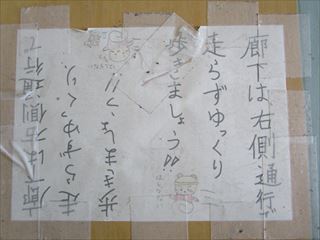 廊下は右側通行で
走らずゆっくり
歩きましょう!!
廊下は右側通行で
走らずゆっくり
歩きましょう!!